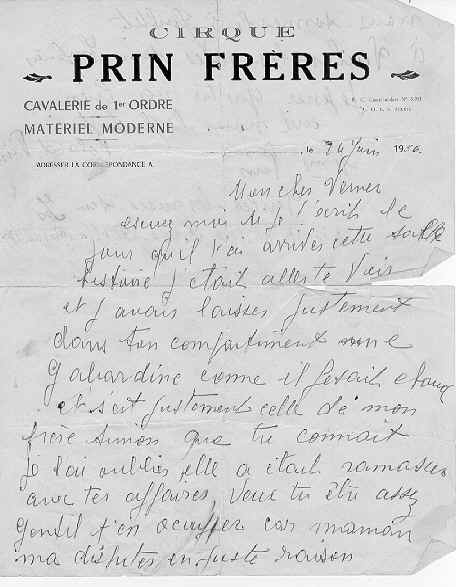 CIRQUE
PRIN FRÈRES
CAVALERIE de 1er ORDRE
MATERIEL MODERNE
ADRESSER LA CORRESPONDANCE A.
le 24 Juin 1950
Mon cher Verner
je t'écrit le
jour qu'il t'ai arrivés cette salle
histoire j'était allés te voir
et j'avais laisses justement
dans ton compartiment une
gabardine comme il fesait chaud
et s'ait justement celle de mon
frère Simon que tu connait
je l'ai oublier, elle a était ramasser
avec tes affaires, veux tu être assez
gentil t'en occupper car maman
ma disputes en juste raison